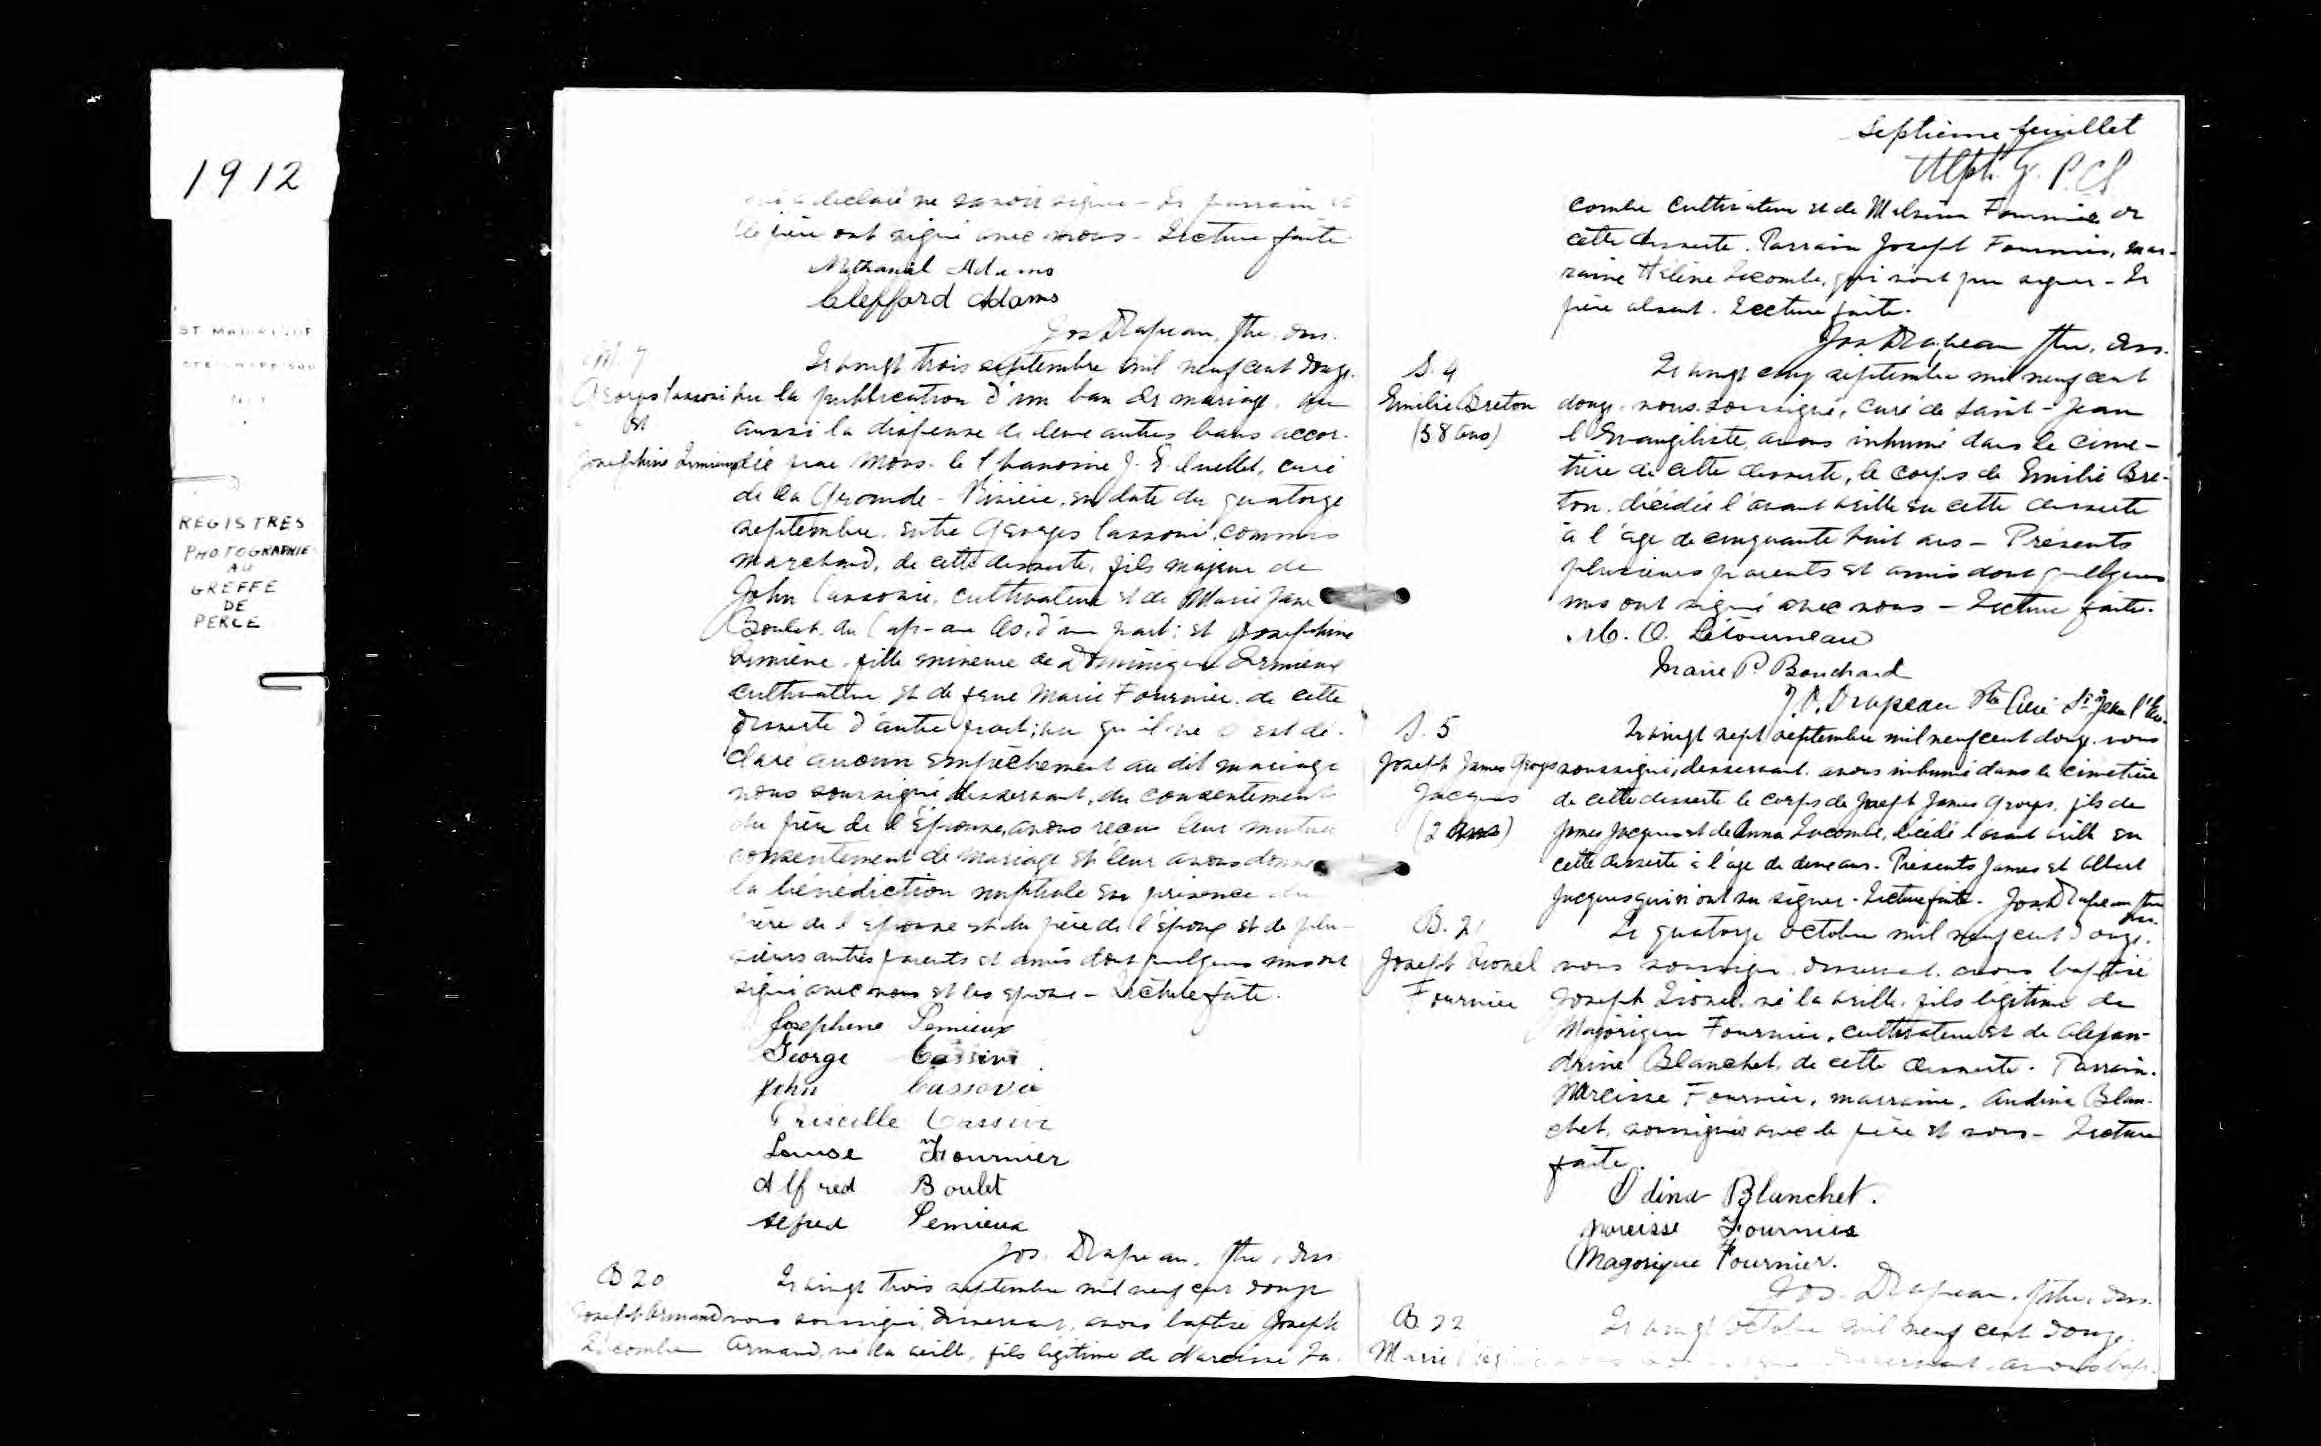 1912
REGISTRES
PHOTOGRAPHIÉ
AU
GREFFE
DE
PERCE
a declaré ne savoir signer - Le parrain et
le père ont signé avec nous - Lecture faite
Nathaniel Adams
Clefford Adams
Jos Drapeau, ptre, des.
M. 7
Georges Cassoni
et
Josephine Lemieux
Le vingt trois septembre mil neuf cent douze.
vu la publication d'un ban de mariage. vu
aussi la dispense de deux autres bans accor-
dée par Mons. le Chanoine J. E. Ouellet, curé
de la Grande - Rivière, en date du quatorze
septembre. entre Georges Cassoni, commis
marchand, de cette desserte, fils majeur de
John Cassonie, cultivateur et de Marie Jane
Boulet, du Cap-au Os, d'une part; et Josephine
Lemieux, fille mineure de Dominique Lemieux
cultivateur et de feue Marie Fournier, de cette
desserte d'autre part; vu qu'il ne s'est dé-
claré aucun empêchement au dit mariage
nous soussigné desservant, du consentement
du père de l'épouse, avons reçu leur mutuel
consentement de mariage et leur avons donné
la bénédiction nuptiale en présence du
père de l'épouse et du père de l'époux et de plu-
sieurs autres parents et amis dont quelques uns ont
signé avec nous et les époux - Lecture faite.
Josephine Lemieux
George Cassivi
John Cassovie
Priscille Cassivi
Louise Fournier
Alfred Boulet
Alfred Lemieux
Jos. Drapeau, ptre, des.
B 20
Joseph Armand
Lacombe
Le vingt trois septembre mil neuf cent douze
nous soussigné, desservant, avons baptisé Joseph
Armand, né la veille, fils légitime de Narcisse La-
Septième feuillet
combe cultivateur et de Fournier de
cette desserte. Parrain Joseph Fournier, mar-
raine Hélène Lacombe, qui n'ont pu signer - Le
père absent. Lecture faite.
Jos Drapeau ptre, des.
S. 4
Emilie Breton
(58 ans)
Le vingt cinq septembre mil neuf cent
douze, nous soussigné, curé de Saint-Jean
l'Evangéliste, avons inhumé dans le cime-
tière de cette desserte, le corps de Emilie Bre-
ton, décédée l'avant veille en cette desserte
à l'âge de cinquante huit ans - Présents
plusieurs parents et amis dont quelques
uns ont signé avec nous - Lecture faite.
M. O. Létourneau
Marie P. Bouchard
J. O. Drapeau Ptre Curé St Jean l'Ev.
S. 5
Joseph James Georges
Jacques
(2 ans)
Le vingt sept septembre mil neuf cent douze, nous
soussigné, desservant, avons inhumé dans le cimetière
de cette desserte le corps de Joseph James Georges, fils de
James Jacques et de Anna Lacombe, décédé l'avant veille en
cette desserte à l'âge de deux ans. Présents James et Albert
Jacques qui n'ont su signer. Lecture faite. Jos. Drapeau ptre
des.
B. 21
Joseph Lionel
Fournier
Le quatorze octobre mil neuf cent douze.
nous soussigné, desservant, avons baptisé
Joseph Lionel, né la veille, fils légitime de
Magorique Fournier, cultivateur et de Alexan-
drine Blanchet, de cette desserte. Parrain
Narcisse Fournier, marraine, Audina Blan-
chet, soussignés avec le père et nous - Lecture
faite.
Odina Blanchet.
Narcisse Fournier
Magorique Fournier.
Jos. Drapeau, ptre, des.
B. 22
Marie
Le vingt octobre mil neuf cent douze.
desservant, avons bap-